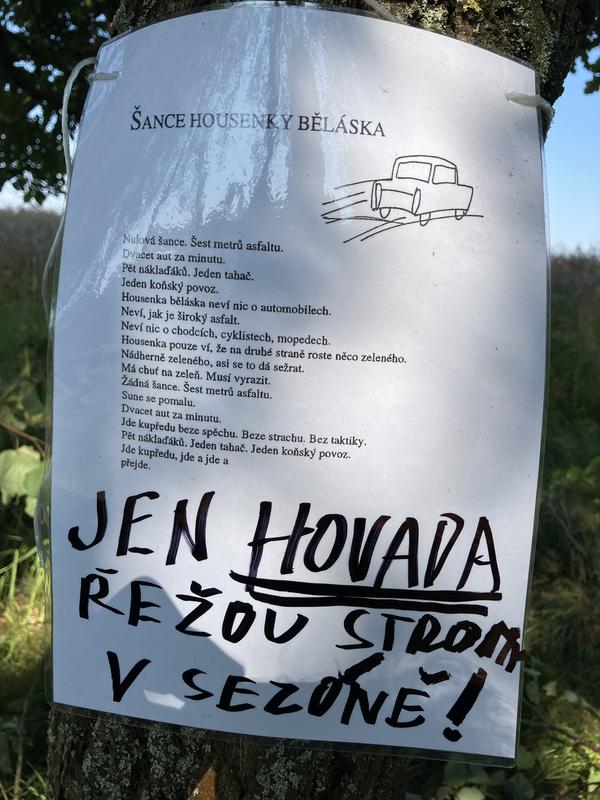 ŠANCE HOUSENKY BĚLÁSKA
Nulová šance. Šest metrů asfaltu.
Dvacet aut za minutu.
Pět náklaďáků. Jeden tahač.
Jeden koňský povoz.
Housenka běláska neví nic o automobilech.
Neví, jak je široký asfalt.
Neví nic o chodcích, cyklistech, mopedech.
Housenka pouze ví, že na druhé straně roste něco zeleného.
Nádherně zeleného, asi se to dá sežrat.
Má chuť na zeleň. Musí vyrazit.
Žádná šance. Šest metrů asfaltu.
Sune se pomalu.
Dvacet aut za minutu.
Jde kupředu beze spěchu. Beze strachu. Bez taktiky.
Pět náklaďáků. Jeden tahač. Jeden koňský povoz.
Jde kupředu, jde a jde a
přejde.
JEN HOVADA
ŘEŽOU STROMY
V SEZÓNĚ!